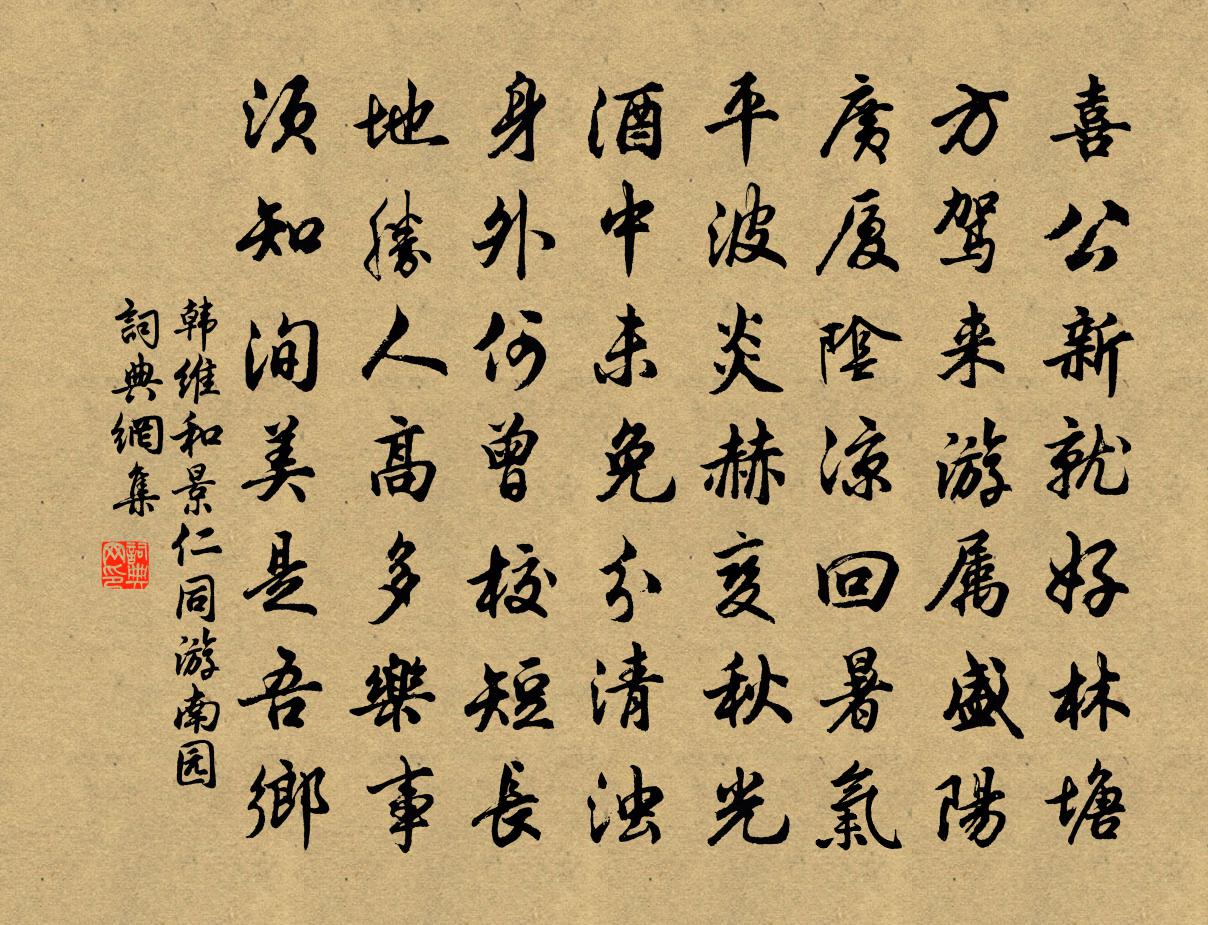 喜公新就好林塘
方驾来游属盛陽
廣厦陰凉回暑氣
平波炎赫变秋光
酒中未免分清浊
身外何曾校短長
地勝人高多樂事
须知洵美是吾鄉
韩维和景仁同游南园
詞典網集
詞典网印